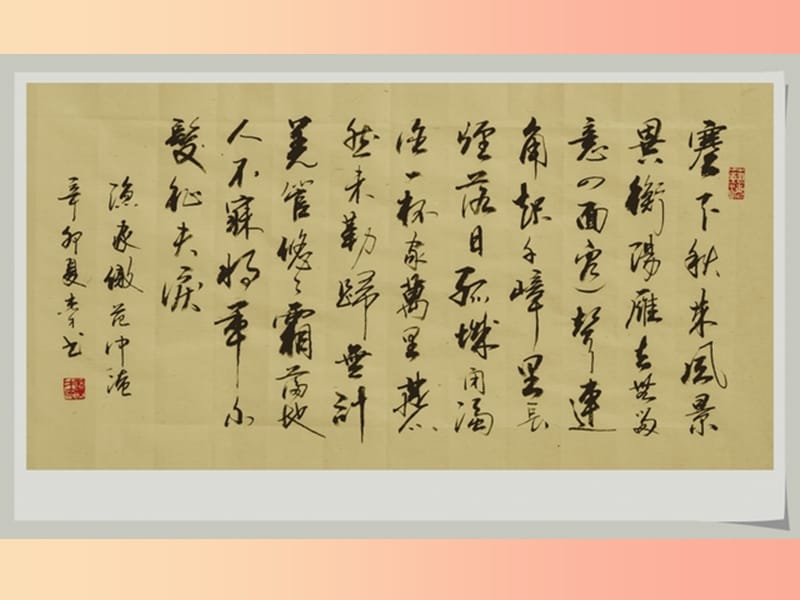 塞下秋来風景
異衡陽雁去無留
意四面邊聲連
角起千嶂里長
煙落日孤城閉濁
酒一杯家萬里燕
然未勒歸無計
羌管悠々霜滿地
人不寐將軍白
髮征夫淚
漁家傲范仲淹
辛卯夏 书